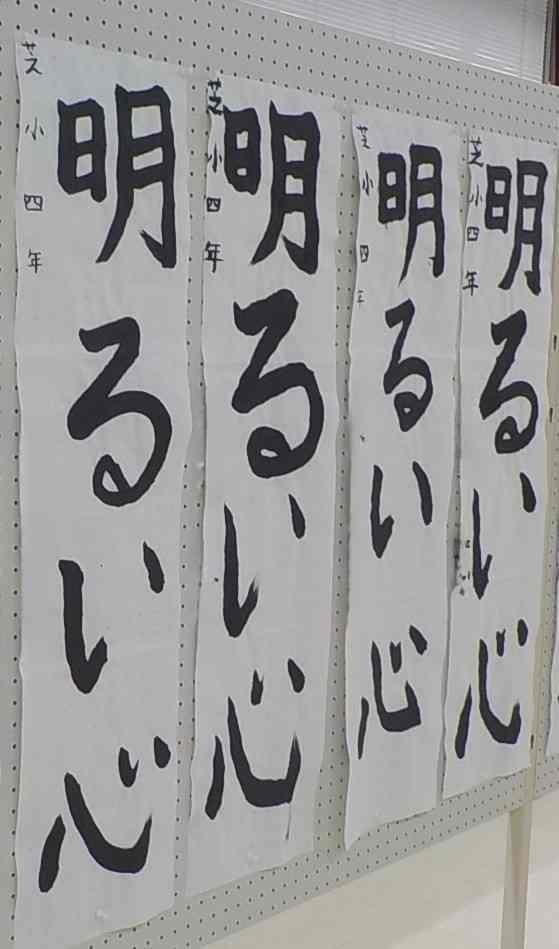 明るい心
芝小四年
明るい心
芝小四年
明るい心
芝小四年
明るい心
芝小四年